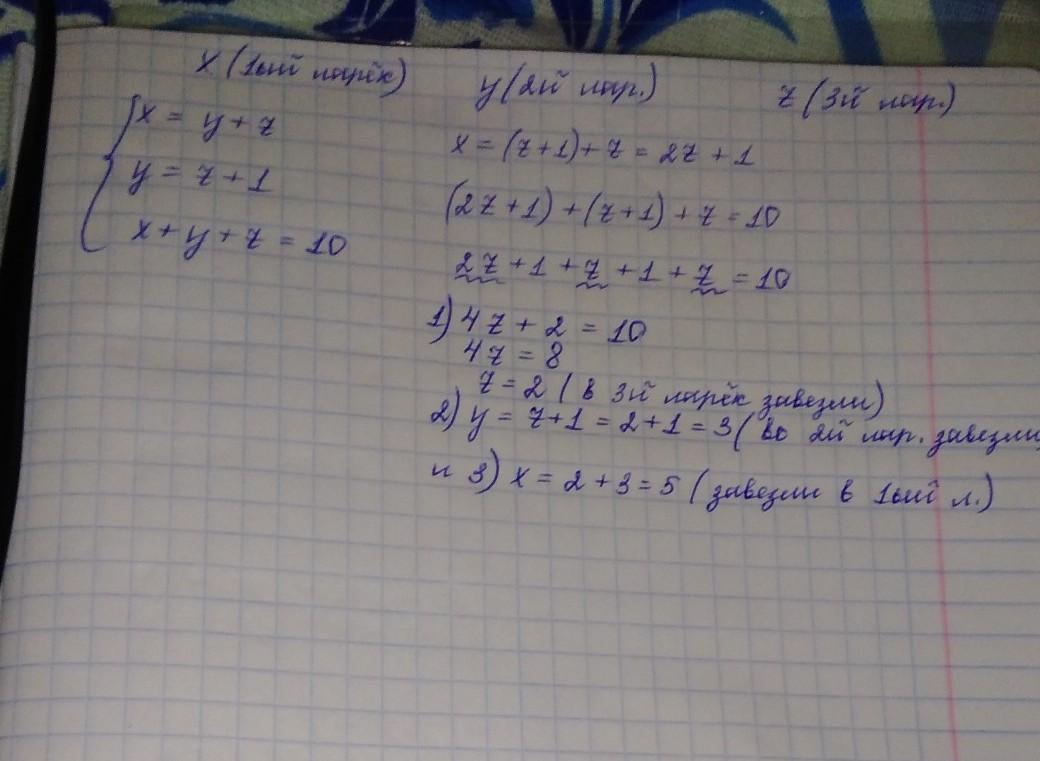 x (1ый ларёк) y (2й лар.) z (3й лар.)
x = y + z
y = z + 1
x + y + z = 10
x = (z+1) + z = 2z + 1
(2z+1) + (z+1) + z = 10
2z + 1 + z + 1 + z = 10
1) 4z + 2 = 10
4z = 8
z = 2 ( в 3й ларёк завезли)
2) y = z+1 = 2+1 = 3 ( во 2й лар. завезли)
и 3) x = 2 + 3 = 5 ( завезли в 1ый л.)